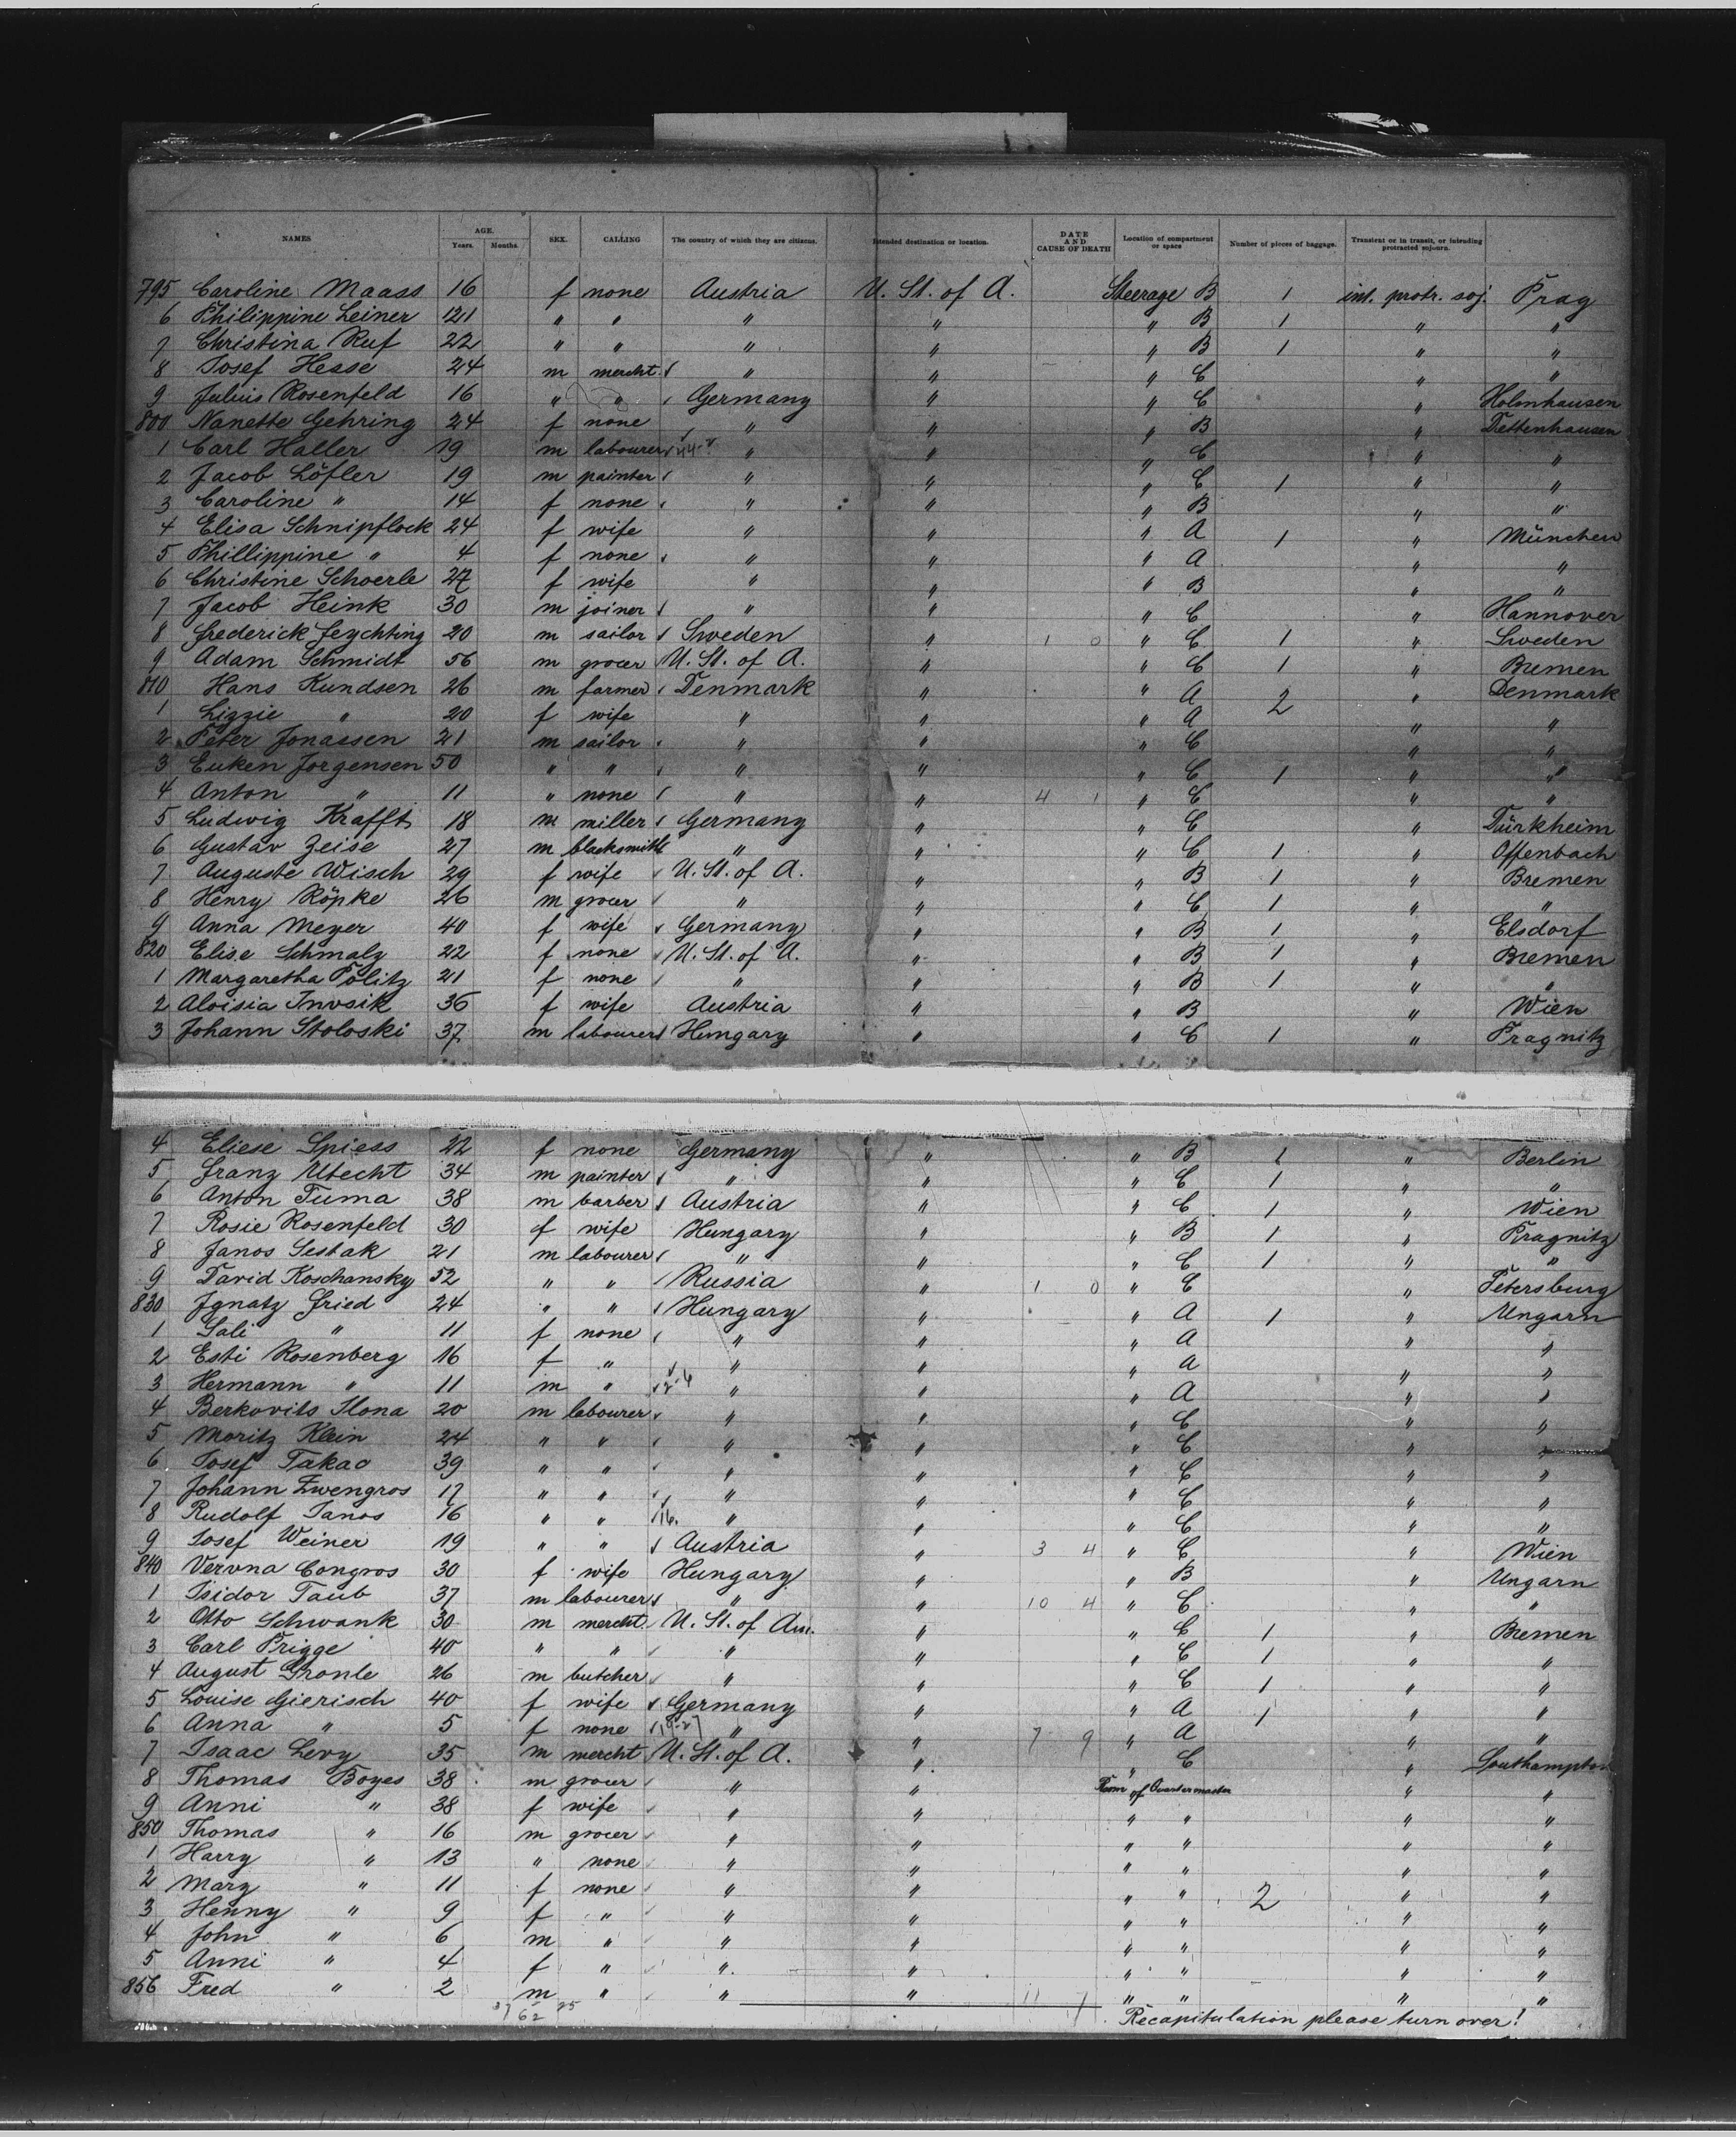 NAMES AGE. Years. Months. SEX. CALLING The country of which they are citizens. Intended destination or location. DATE AND CAUSE OF DEATH Location of compartment or space Number of pieces of baggage. Transient or in transit, or intending protracted sojourn.
795 Caroline Maass 16 f none Austria U. St. of A. Steerage B 1 int. protr. soj. Prag
6 Philippine Leiner 21 " " " " " B 1 " "
7 Christina Ruf 22 " " " " " B 1 " "
8 Josef Hesse 24 m mercht. " " " C " "
9 Julius Rosenfeld 16 " " Germany " " C " Holmhausen
800 Nanette Gehring 24 f none " " " B " Dettenhausen
1 Carl Haller 19 m labourer " " " C " "
2 Jacob Löfler 19 m painter " " " C 1 " "
3 Caroline " 14 f none " " " B " "
4 Elisa Schnipflock 24 f wife " " " A 1 " München
5 Phillippine " 4 f none " " " A " "
6 Christine Schoerle 27 f wife " " " B " "
7 Jacob Heink 30 m joiner " " " C " Hannover
8 Frederick Feychting 20 m sailor Sweden " 1 0 " C 1 " Sweden
9 Adam Schmidt 56 m grocer U. St. of A. " " C 1 " Bremen
810 Hans Kundsen 26 m farmer Denmark " " A 2 " Denmark
1 Lizzie " 20 f wife " " " A " "
2 Peter Jonassen 21 m sailor " " " C " "
3 Euken Jorgensen 50 " " " " " C 1 " "
4 Anton " 11 " none " " 4 1 " C " "
5 Ludwig Krafft 18 m miller Germany " " C " Dürkheim
6 Gustav Zeise 27 m blacksmith " " " C 1 " Offenbach
7 Auguste Wisch 29 f wife U. St. of A. " " B 1 " Bremen
8 Henry Röpke 26 m grocer " " " C 1 " "
9 Anna Meyer 40 f wife Germany " " B 1 " Elsdorf
820 Elise Schmalz 22 f none U. St. of A. " " B 1 " Bremen
1 Margaretha Pölitz 21 f none " " " B 1 " "
2 Aloisia Invsik 36 f wife Austria " " B " Wien
3 Johann Stoloski 37 m labourer Hungary " " C 1 " Pragnitz
4 Eliese Spiess 22 f none Germany " " B 1 " Berlin
5 Franz Utecht 34 m painter " " " C 1 " "
6 Anton Tuma 38 m barber Austria " " C 1 " Wien
7 Rosie Rosenfeld 30 f wife Hungary " " B 1 " Pragnitz
8 Janos Sestak 21 m labourer " " " C 1 " "
9 David Koschansky 52 " " Russia " 1 0 " C " Petersburg
830 Ignatz Fried 24 " " Hungary " " A 1 " Ungarn
1 Sali " 11 f none " " " A " "
2 Esti Rosenberg 16 f " " " " A " "
3 Hermann " 11 m " " " " A " "
4 Berkovits Ilona 20 m labourer " " " C " "
5 Moritz Klein 24 " " " " " C " "
6 Josef Takac 39 " " " " " C " "
7 Johann Zwengros 17 " " " " " C " "
8 Rudolf Janos 16 " " 16. " " " C " "
9 Josef Weiner 19 " " Austria " 3 4 " C " Wien
840 Verona Congros 30 f wife Hungary " " B " Ungarn
1 Isidor Taub 37 m labourer " " 10 4 " C " "
2 Otto Schwank 30 m mercht. U. St. of Am. " " C 1 " Bremen
3 Carl Prigge 40 " " " " " C 1 " "
4 August Gronle 26 m butcher " " " C 1 " "
5 Louise Gierisch 40 f wife Germany " " A 1 " "
6 Anna " 5 f none " " 7 9 " A " "
7 Isaac Levy 35 m mercht U. St. of A. " " C " Southampton
8 Thomas Boyes 38 m grocer " " Room of Quartermaster " "
9 Anni " 38 f wife " " " " " "
850 Thomas " 16 m grocer " " " " " "
1 Harry " 13 " none " " " " " "
2 Mary " 11 f none " " " " 2 " "
3 Henny " 9 f " " " " " " "
4 John " 6 m " " " " " " "
5 Anni " 4 f " " " " " " "
856 Fred " 2 m " " " 11 7 " " " "
Recapitulation please turn over!